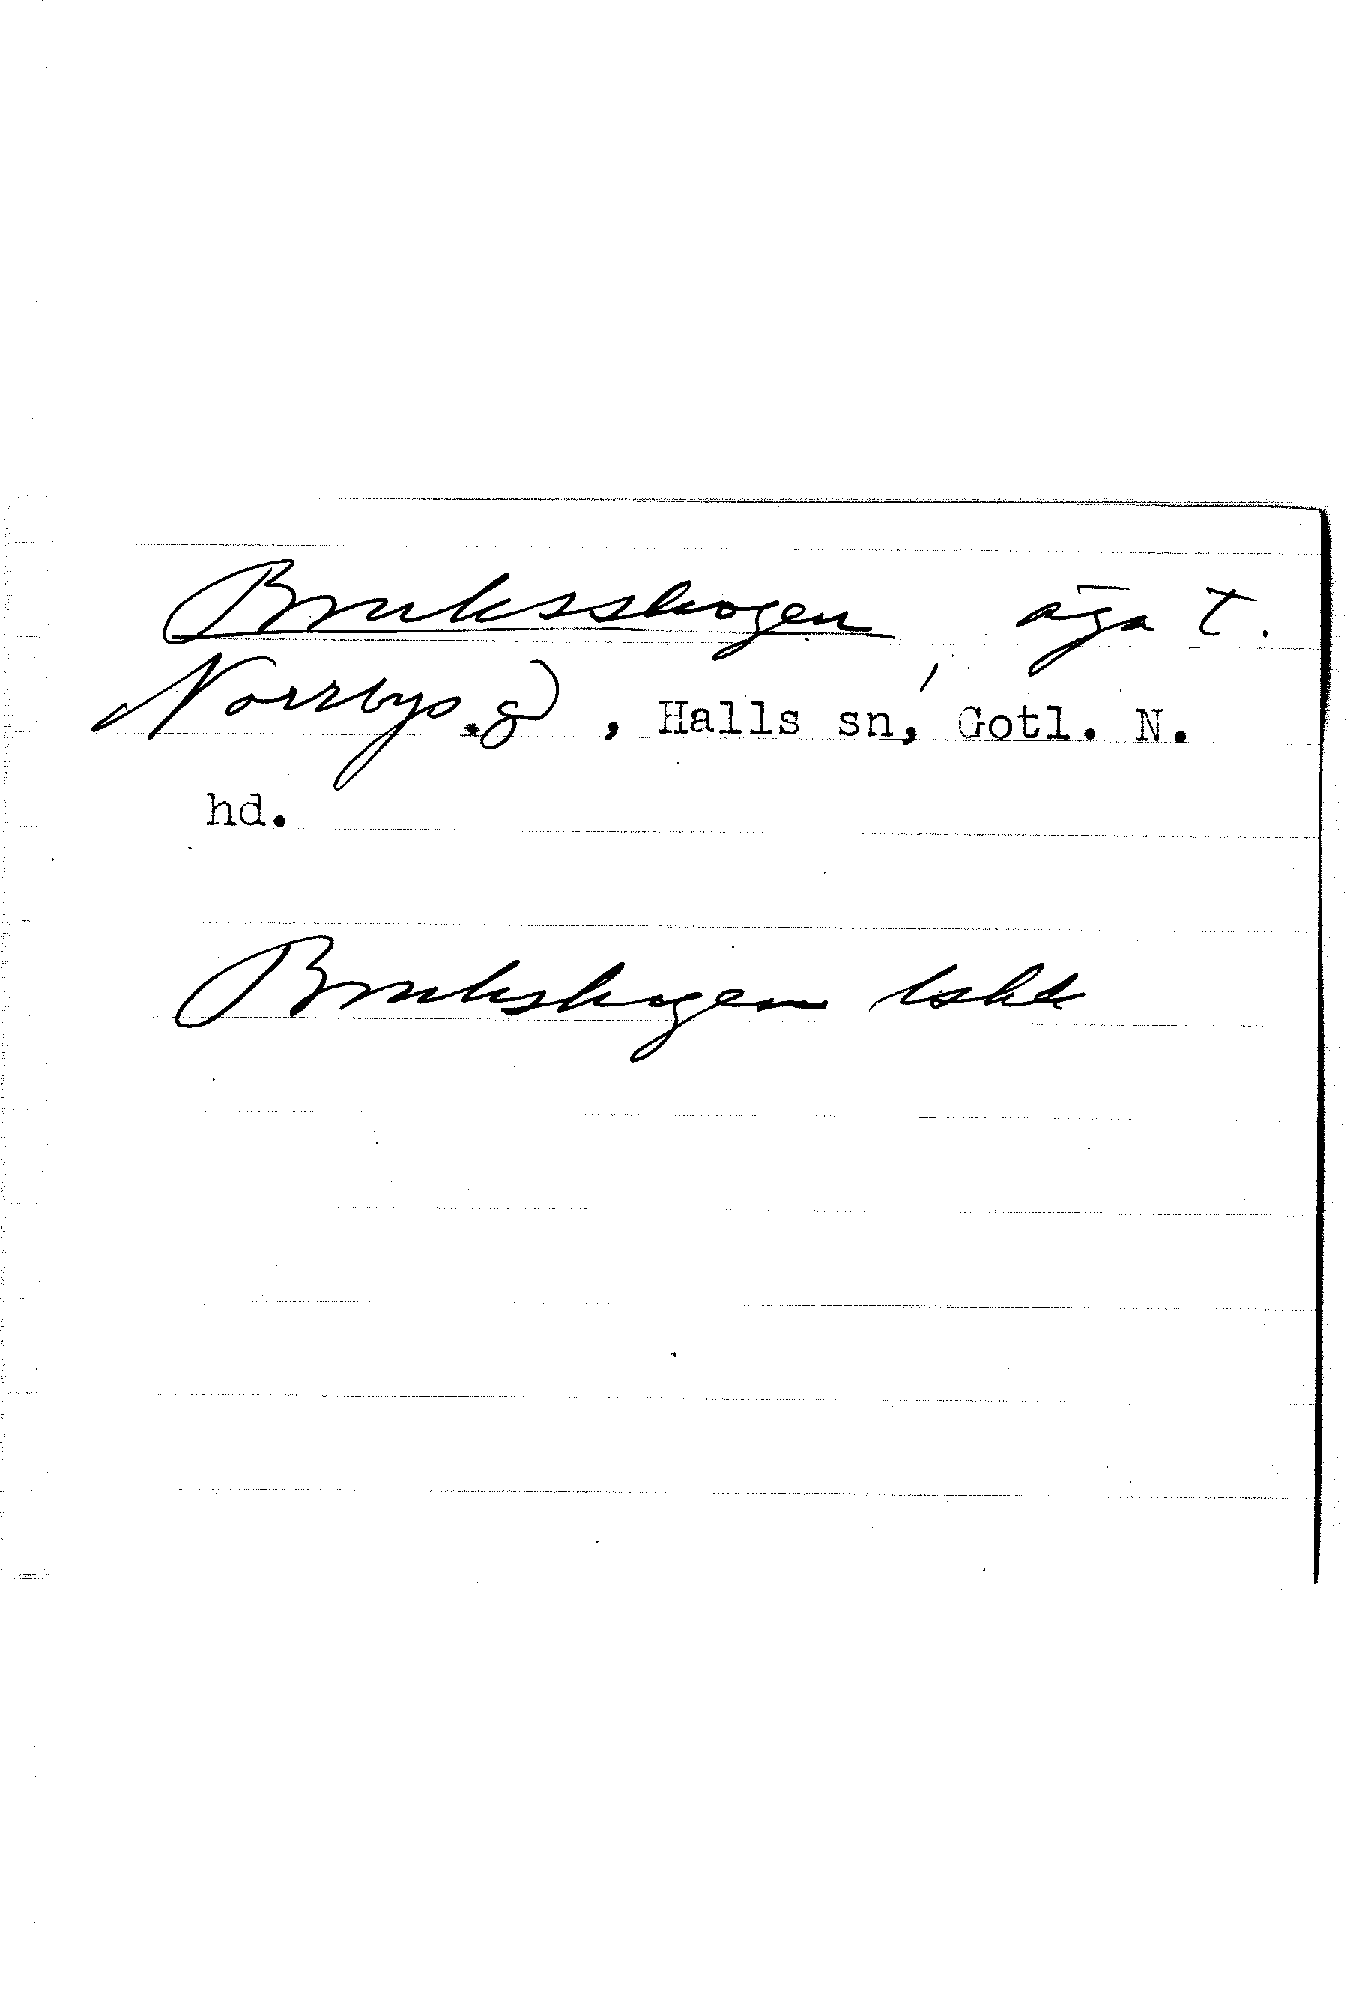 Bruksskogen, äga t.
Norrbys.g, Halls sn, Gotl. N.
hd.
Bruksskogen Iskk